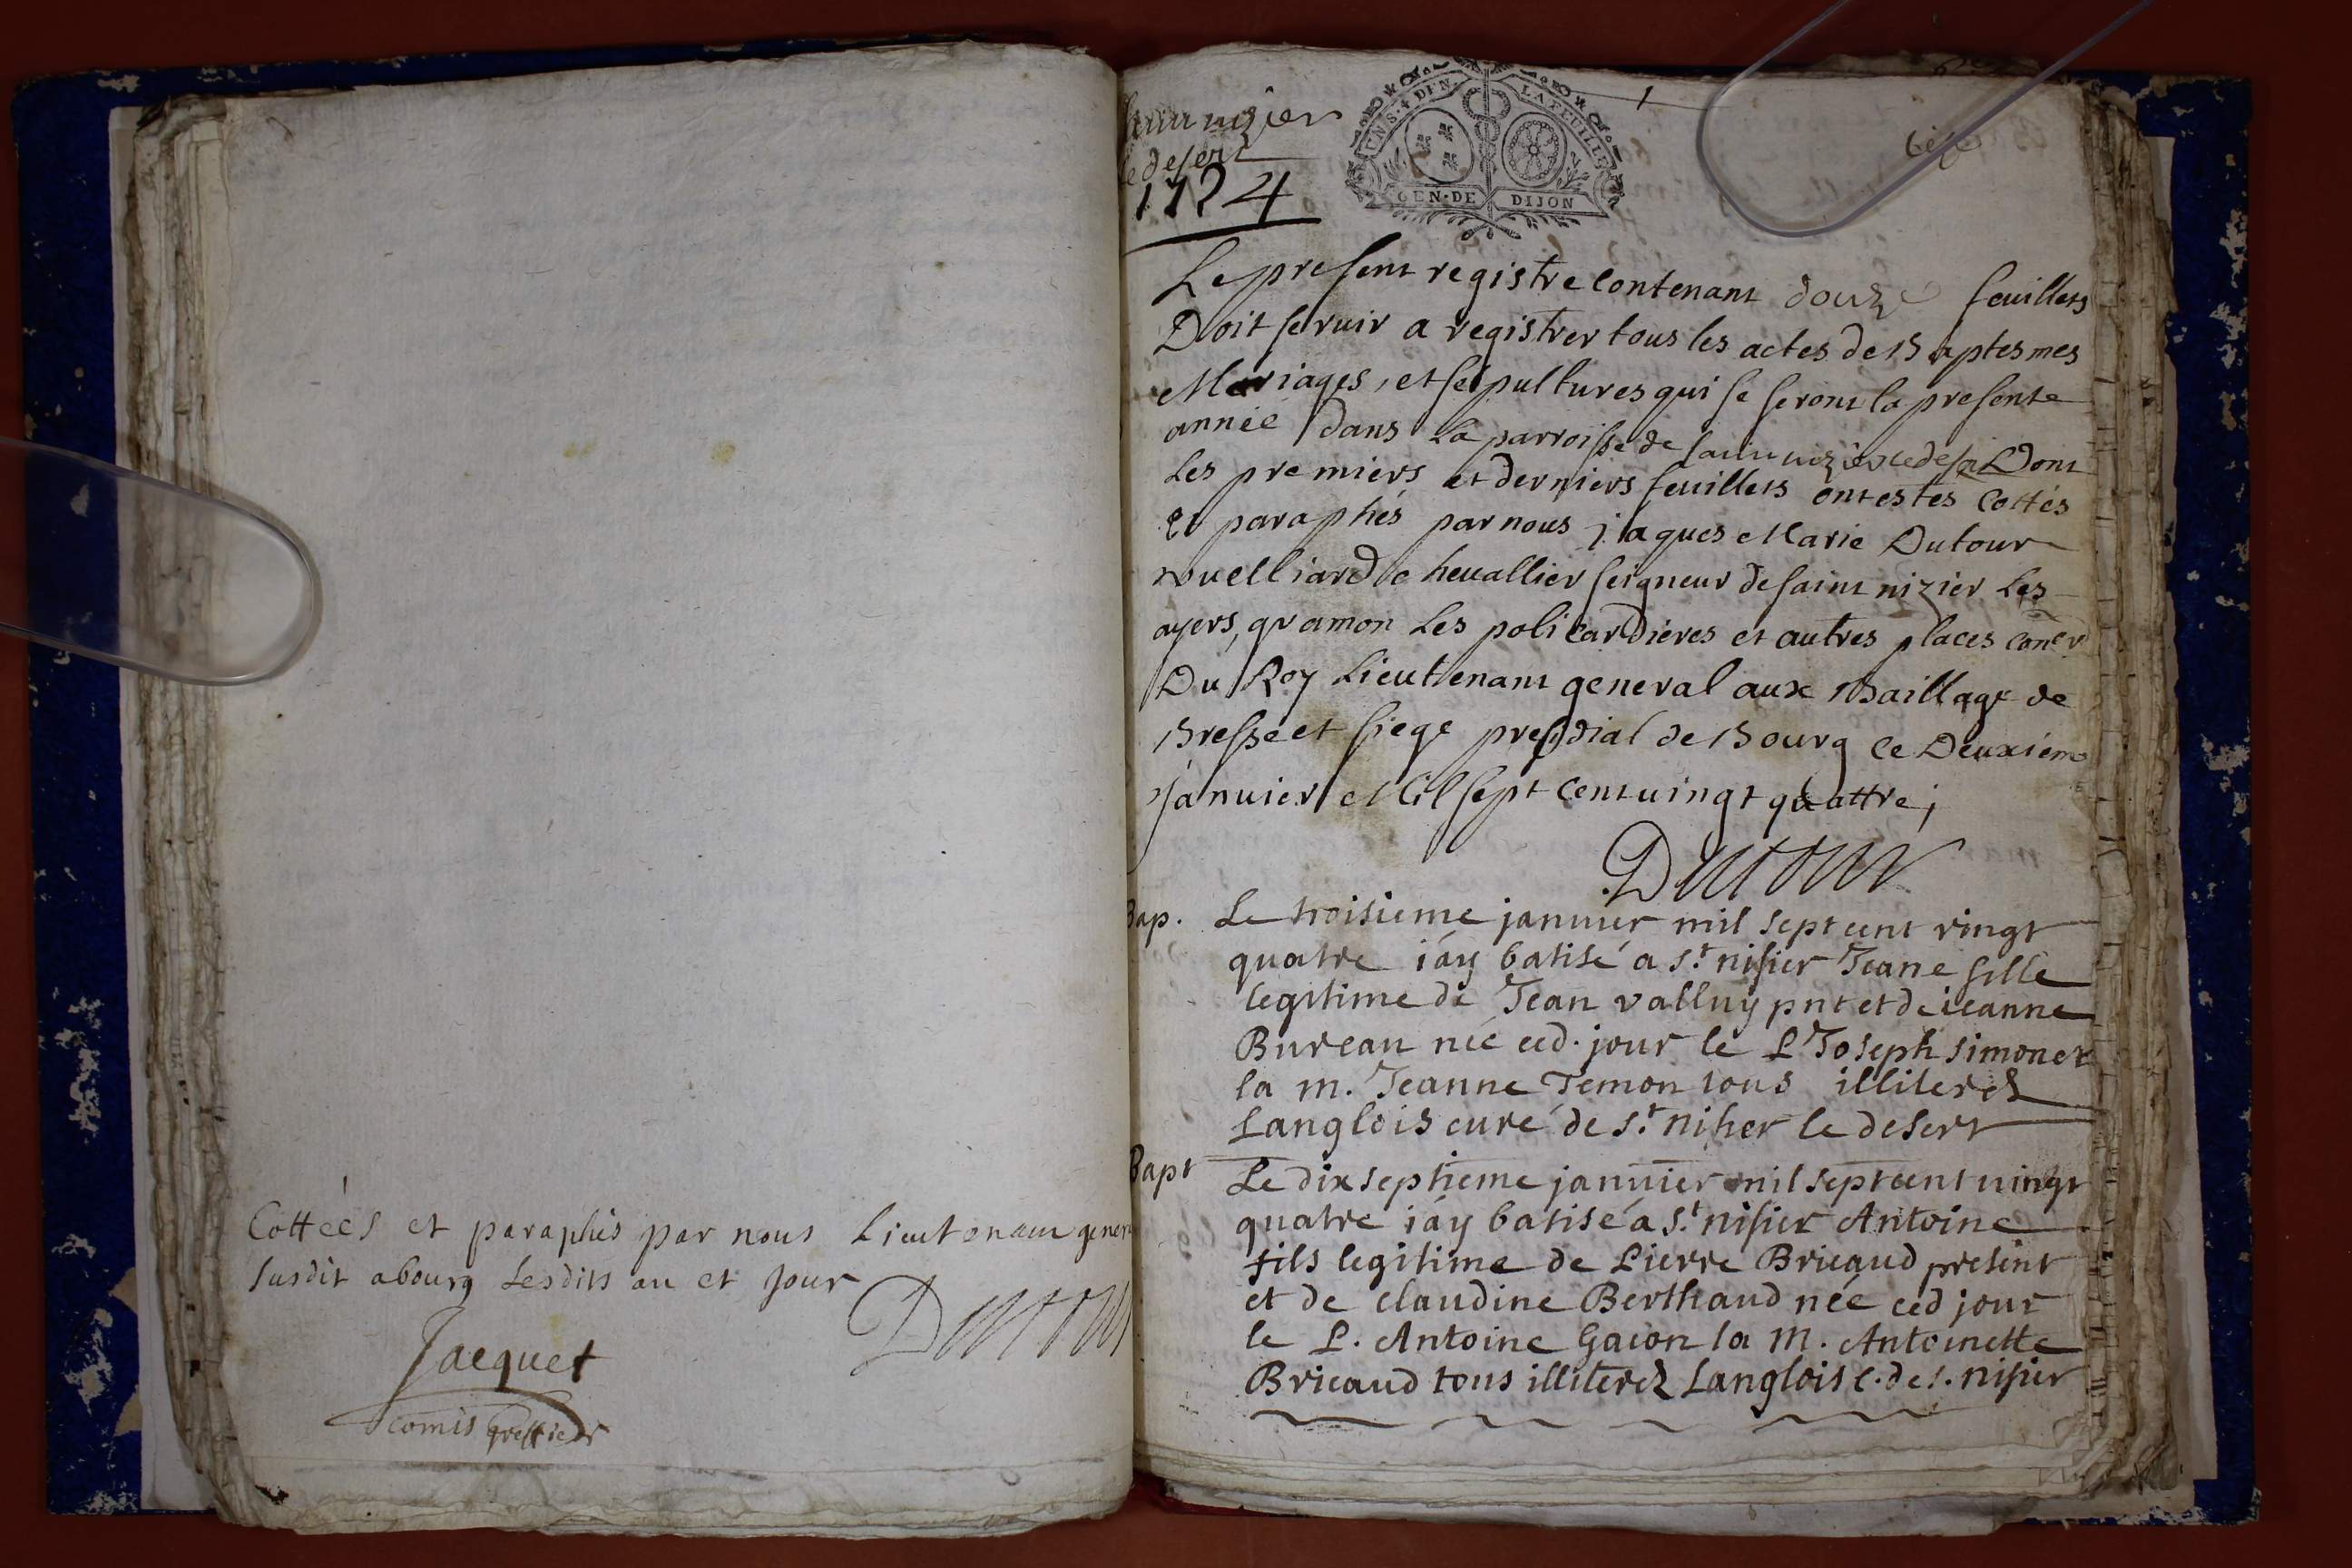 Cottées et paraphés par nous Lieutenant gener
susdit abourg Lesdits an et jour
Dutour
Jacquet
comis greffier
Saint nizier
le desert
1724
LA FEUILLE
GEN·DE DIJON
1
Le present registre contenant douze feuillets
Doit servir a registrer tous les actes de Baptesmes
Mariages, et sepultures qui se feront la presente
année dans La parroisse de saint nizier le desert Dont
Les premiers et derniers feuillets ont estés Cottés
Et paraphés par nous jaques Marie Dutour
vuelliard chevallier seigneur de saint nizier Les
ayers, gramon Les policardieres et autres places coner
Du Roy Lieutenant general aux Baillage de
Bresse et siege presidial de Bourg ce Deuxieme
Janvier Mil sept cent vingt quattre;
Dutour
Bap. Le troisieme janvier mil sept cent vingt
quatre j'ay batisé a st nisier Jeane fille
legitime de Jean valluy pnt et de jeanne
Bureau née ced. jour le P Joseph simonet
la m. Jeanne Temon tous illiterez
Langlois curé de st nisier le desert
Bapt Le dix septieme janvier mil sept cent vingt
quatre j'ay batisé a st nisier Antoine
fils legitime de Pierre Bricaud present
et de claudine Berthaud née ced jour
le P. Antoine Gacon la M. Antoinette
Bricaud tous illiterez Langlois c. de s. nisier